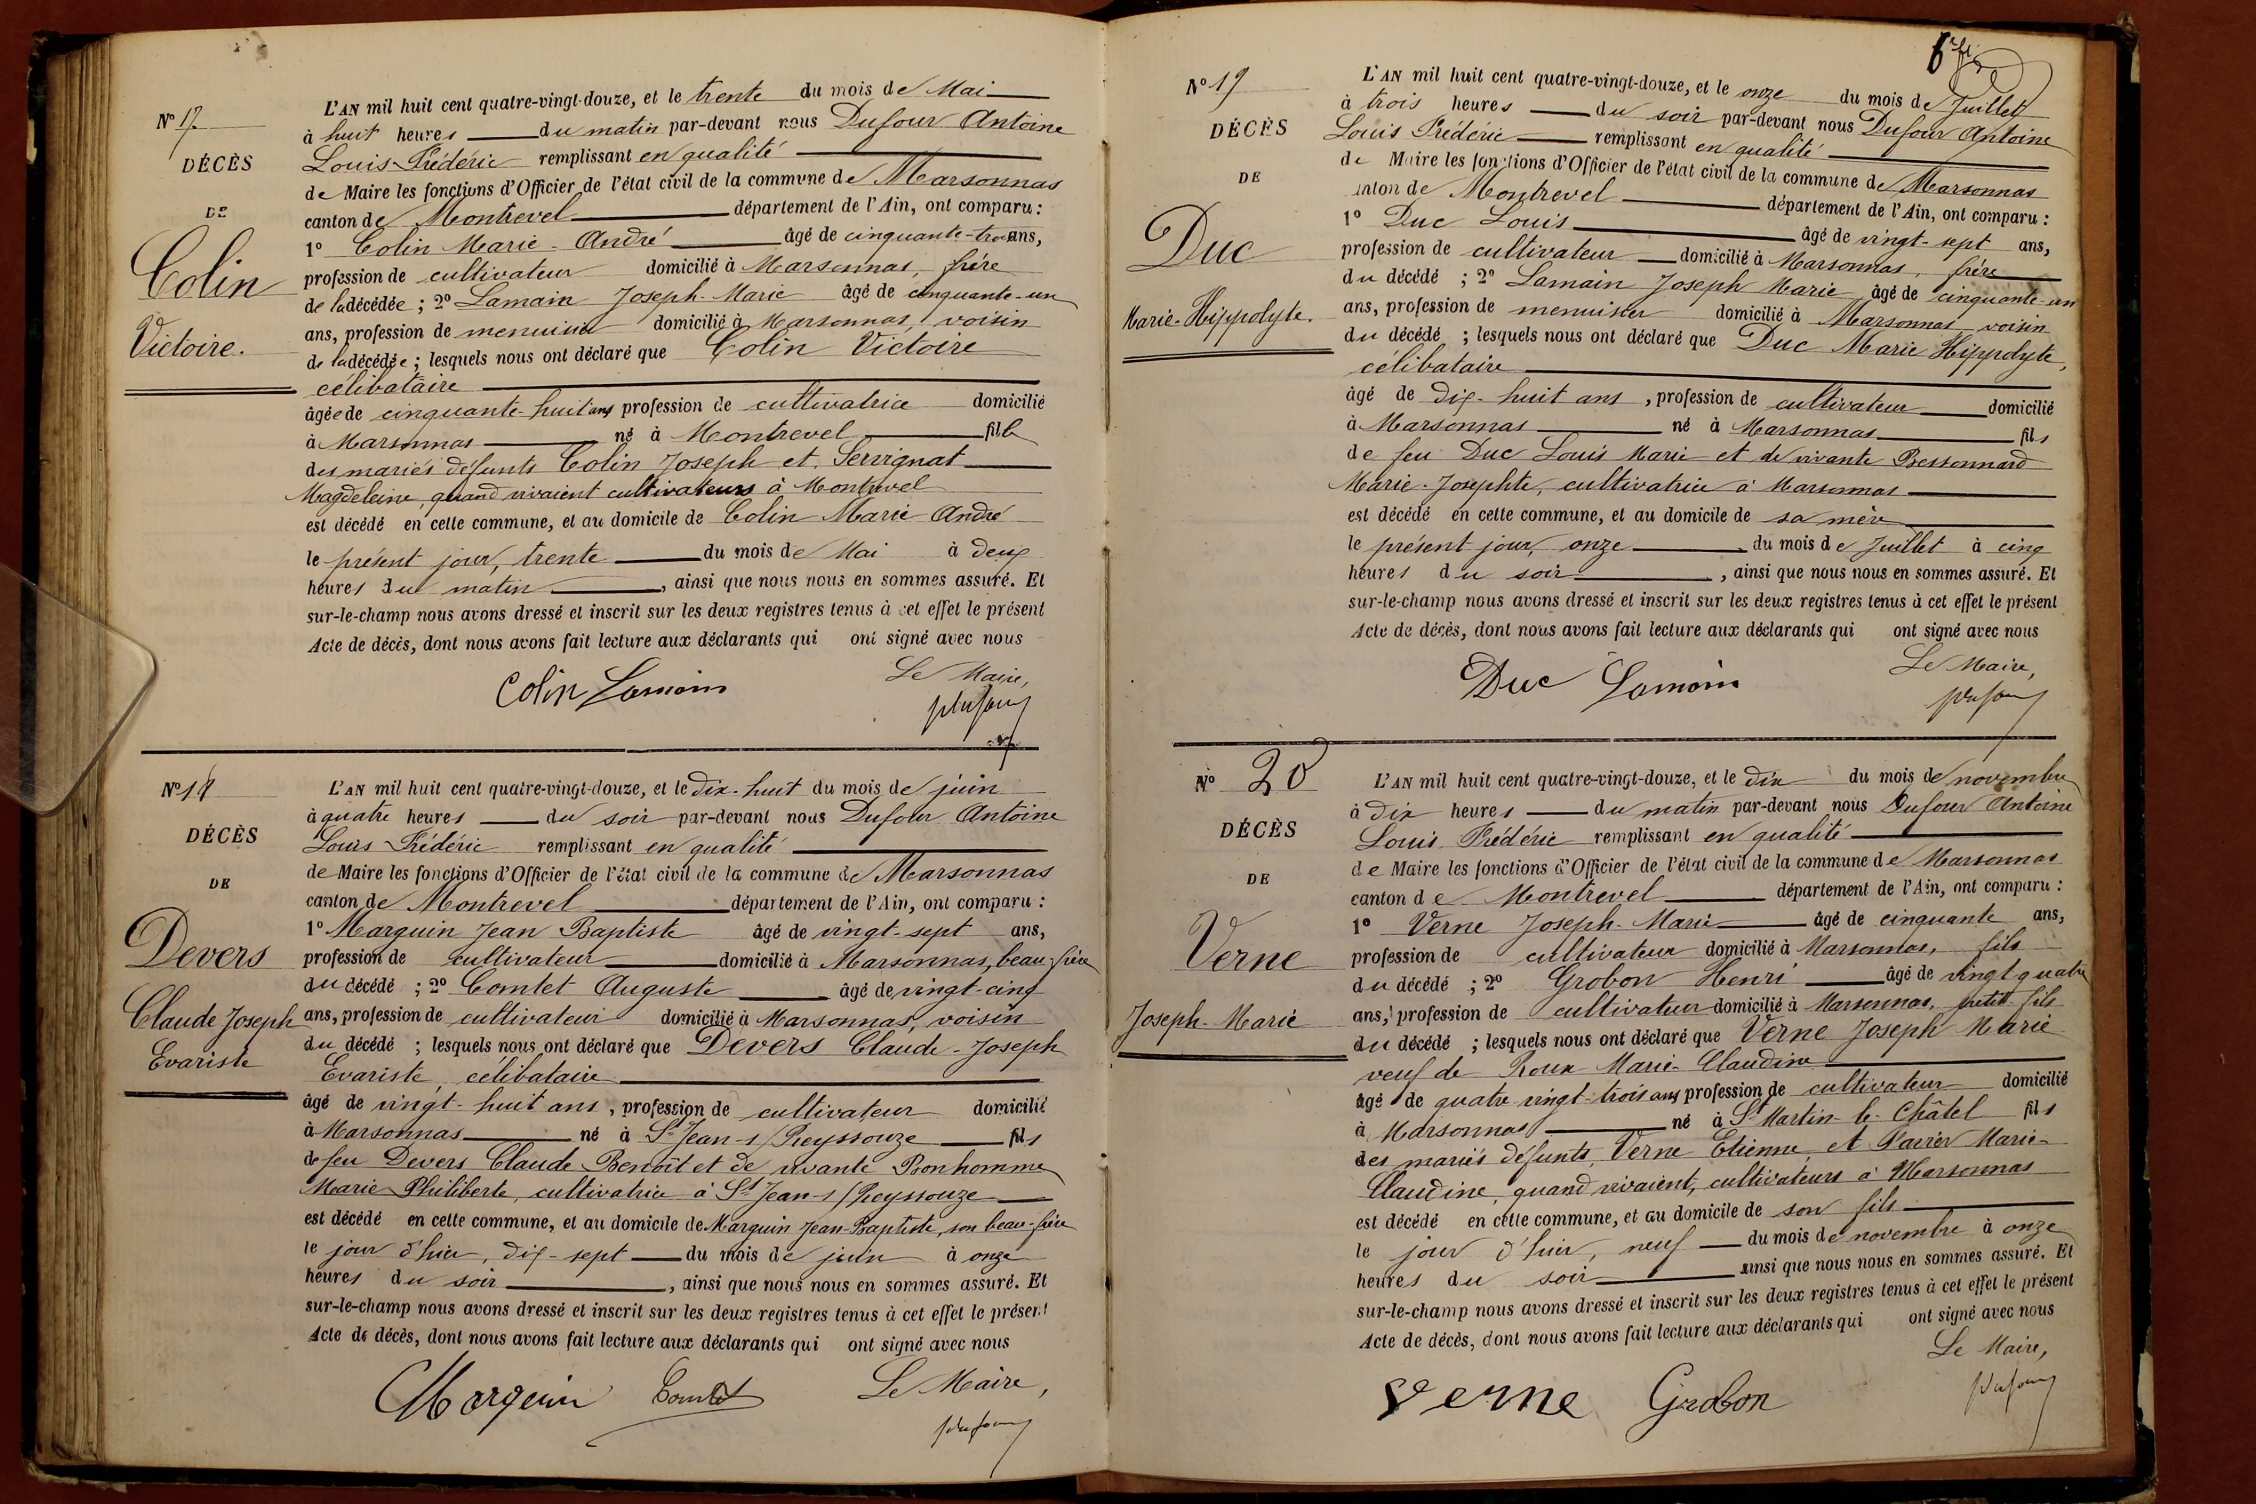 N° 17
DÉCÈS
DE
Colin
Victoire.
L'AN mil huit cent quatre-vingt-douze, et le trente du mois de Mai
à huit heures du matin par-devant nous Dufour Antoine
Louis Frédéric remplissant en qualité
de Maire les fonctions d'Officier de l'état civil de la commune de Marsonnas
canton de Montrevel département de l'Ain, ont comparu :
1° Colin Marie-André âgé de cinquante-trois ans,
profession de cultivateur domicilié à Marsonnas, frère
de la décédée ; 2° Lamain Joseph-Marie âgé de cinquante-un
ans, profession de menuisier domicilié à Marsonnas, voisin
de la décédée ; lesquels nous ont déclaré que Colin Victoire
célibataire
âgée de cinquante-huit ans profession de cultivatrice domicilié
à Marsonnas né à Montrevel fille
des mariés défunts Colin Joseph et Servignat
Magdeleine, quand vivaient cultivateurs à Montrevel
est décédé en cette commune, et au domicile de Colin Marie André
le présent jour, trente du mois de Mai à deux
heures du matin, ainsi que nous nous en sommes assuré. Et
sur-le-champ nous avons dressé et inscrit sur les deux registres tenus à cet effet le présent
Acte de décès, dont nous avons fait lecture aux déclarants qui ont signé avec nous
Le Maire,
Colin Lamain
Dufour
N° 18
DÉCÈS
DE
Devers
Claude Joseph
Evariste
L'AN mil huit cent quatre-vingt-douze, et le dix-huit du mois de juin
à quatre heures du soir par-devant nous Dufour Antoine
Louis Frédéric remplissant en qualité
de Maire les fonctions d'Officier de l'état civil de la commune de Marsonnas
canton de Montrevel département de l'Ain, ont comparu :
1° Marguin Jean Baptiste âgé de vingt-sept ans,
profession de cultivateur domicilié à Marsonnas, beau-frère
du décédé ; 2° Comtet Auguste âgé de vingt-cinq
ans, profession de cultivateur domicilié à Marsonnas, voisin
du décédé ; lesquels nous ont déclaré que Devers Claude-Joseph
Evariste, célibataire
âgé de vingt-huit ans, profession de cultivateur domicilié
à Marsonnas né à St Jean-s/Reyssouze fils
de feu Devers Claude Benoît et de vivante Bonhomme
Marie Philiberte, cultivatrice à St Jean-s/Reyssouze
est décédé en cette commune, et au domicile de Marguin Jean-Baptiste, son beau-frère
le jour d'hier, dix-sept du mois de juin à onze
heures du soir, ainsi que nous nous en sommes assuré. Et
sur-le-champ nous avons dressé et inscrit sur les deux registres tenus à cet effet le présent
Acte de décès, dont nous avons fait lecture aux déclarants qui ont signé avec nous
Marguin Comtet Le Maire,
Dufour
N° 19
DÉCÈS
DE
Duc
Marie-Hippolyte.
L'AN mil huit cent quatre-vingt-douze, et le onze du mois de Juillet
à trois heures du soir par-devant nous Dufour Antoine
Louis Frédéric remplissant en qualité
de Maire les fonctions d'Officier de l'état civil de la commune de Marsonnas
canton de Montrevel département de l'Ain, ont comparu :
1° Duc Louis âgé de vingt-sept ans,
profession de cultivateur domicilié à Marsonnas, frère
du décédé ; 2° Lamain Joseph Marie âgé de cinquante-un
ans, profession de menuisier domicilié à Marsonnas voisin
du décédé ; lesquels nous ont déclaré que Duc Marie Hippolyte,
célibataire
âgé de dix-huit ans, profession de cultivateur domicilié
à Marsonnas né à Marsonnas fils
de feu Duc Louis Marie et de vivante Bessonnard
Marie-Josephte, cultivatrice à Marsonnas
est décédé en cette commune, et au domicile de sa mère
le présent jour, onze du mois de Juillet à cinq
heures du soir, ainsi que nous nous en sommes assuré. Et
sur-le-champ nous avons dressé et inscrit sur les deux registres tenus à cet effet le présent
Acte de décès, dont nous avons fait lecture aux déclarants qui ont signé avec nous
Le Maire,
Duc Lamain
Dufour
N° 20
DÉCÈS
DE
Verne
Joseph-Marie
L'AN mil huit cent quatre-vingt-douze, et le dix du mois de novembre
à dix heures du matin par-devant nous Dufour Antoine
Louis Frédéric remplissant en qualité
de Maire les fonctions d'Officier de l'état civil de la commune de Marsonnas
canton de Montrevel département de l'Ain, ont comparu :
1° Verne Joseph-Marie âgé de cinquante ans,
profession de cultivateur domicilié à Marsonnas, fils
du décédé ; 2° Grobon Henri âgé de vingt-quatre
ans, profession de cultivateur domicilié à Marsonnas, petit fils
du décédé ; lesquels nous ont déclaré que Verne Joseph Marie
veuf de Roux Marie-Claudine
âgé de quatre vingt-trois ans profession de cultivateur domicilié
à Marsonnas né à St Martin-le-Châtel fils
des mariés défunts, Verne Etienne et Marie-
Claudine, quand vivaient, cultivateurs à Marsonnas
est décédé en cette commune, et au domicile de son fils
le jour d'hier, neuf du mois de novembre à onze
heures du soir ainsi que nous nous en sommes assuré. Et
sur-le-champ nous avons dressé et inscrit sur les deux registres tenus à cet effet le présent
Acte de décès, dont nous avons fait lecture aux déclarants qui ont signé avec nous
Le Maire,
Verne Grobon
Dufour